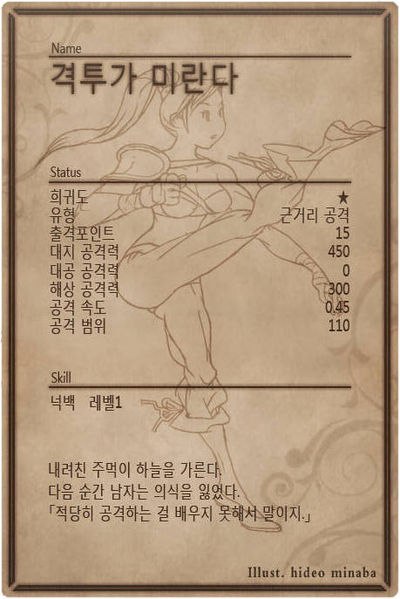 Name
격투가 미란다
Status
희귀도 ★
유형 근거리 공격
출격포인트 15
대지 공격력 450
대공 공격력 0
해상 공격력 300
공격 속도 0.45
공격 범위 110
Skill
넉백 레벨1
내려친 주먹이 하늘을 가른다.
다음 순간 남자는 의식을 잃었다.
「적당히 공격하는 걸 배우지 못해서 말이지.」
Illust. hideo minaba